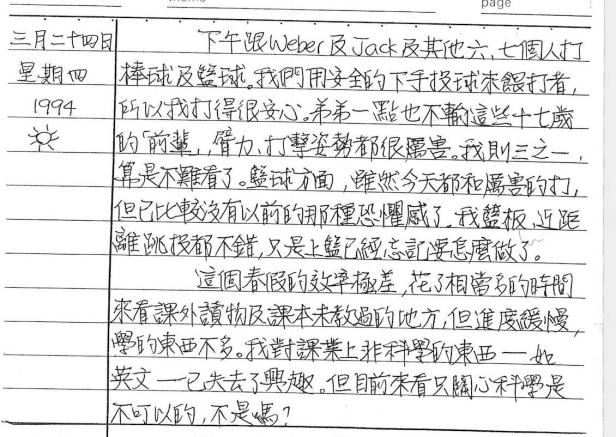 page
三月二十四日
星期四
1994
下午跟Weber及Jack及其他六、七個人打
棒球及籃球。我們用安全的下手投球來餵打者,
所以我打得很安心。弟弟一點也不輸這些十七歲
的「前輩」,臂力、打擊姿勢都很厲害。我則三之一,
算是不難看了。籃球方面,雖然今天都和厲害的打,
但已比較沒有以前的那種恐懼感了。我籃板、近距
離跳投都不錯,只是上籃已經忘記要怎麼做了。
這個春假的效率極差,花了相當多的時間
來看課外讀物及課本未教過的地方,但進度緩慢,
學的東西不多。我對課業上非科學的東西一如
英文一已失去了興趣。但目前來看只關心科學是
不可以的,不是嗎?